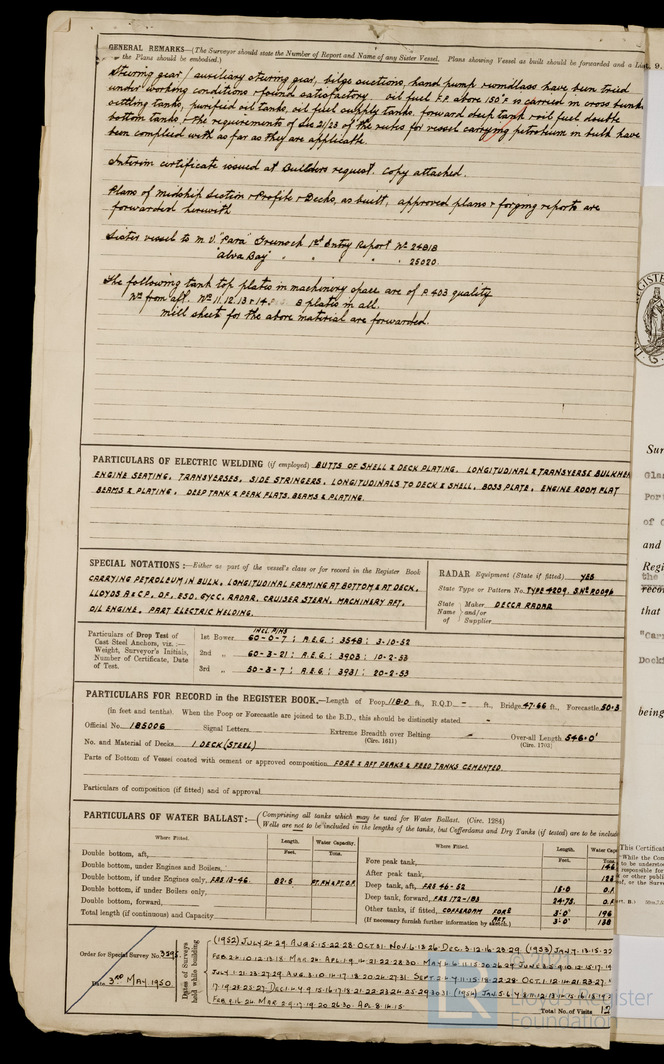 GENERAL REMARKS—(The Surveyor should state the Number of Report and Name of any Sister Vessel. Plans showing Vessel as built should be forwarded and a List
the Plans should be embodied.)
Steering gear / auxiliary steering gear, bilge suctions, hand pump & windlass have been tried
under working conditions & found satisfactory. oil fuel F.P. above 150°F is carried in cross bunker
settling tanks, purified oil tanks, oil fuel supply tanks, forward deep tank & oil fuel double
bottom tanks, & the requirements of Sec 21/23 of the rules for vessel carrying petroleum in bulk have
been complied with as far as they are applicable.
Interim certificate issued at Builders request. Copy attached.
Plans of Midship Section & Profile & Decks, as built, approved plans & forging reports are
forwarded herewith
Sister vessel to m.v. "Para" Greenock 1st Entry Report No 24818
"Alva Bay" " " " " 25020.
The following tank top plates in machinery space are of P.403 quality
No from aft. No 11.12.13 & 14. 8 plates in all.
Mill sheet for the above material are forwarded.
PARTICULARS OF ELECTRIC WELDING (if employed) BUTTS OF SHELL & DECK PLATING, LONGITUDINAL & TRANSVERSE BULKHEA
ENGINE SEATING, TRANSVERSES, SIDE STRINGERS, LONGITUDINALS TO DECK & SHELL, BOSS PLATE, ENGINE ROOM FLAT
BEAMS & PLATING, DEEP TANK & PEAK FLATS, BEAMS & PLATING.
SPECIAL NOTATIONS:—Either as part of the vessel's class or for record in the Register Book
CARRYING PETROLEUM IN BULK, LONGITUDINAL FRAMING AT BOTTOM & AT DECK,
LLOYDS A & C P, DF, ESD, GYCC, RADAR, CRUISER STERN, MACHINERY AFT,
OIL ENGINE, PART ELECTRIC WELDING.
RADAR Equipment (State if fitted) YES
State Type or Pattern No. TYPE 4209. S.No R0096
State Name of Maker and/or Supplier DECCA RADAR
Particulars of Drop Test of Cast Steel Anchors, viz.:— Weight, Surveyor's Initials, Number of Certificate, Date of Test.
INCL. PINS
1st Bower 60-0-7; A.E.G.; 3548; 3-10-52
2nd " 60-3-21; A.E.G.; 3903; 10-2-53
3rd " 50-3-7; A.E.G.; 3931; 20-2-53
PARTICULARS FOR RECORD in the REGISTER BOOK.—Length of Poop 118.0 ft., R.Q.D. - ft., Bridge 47.66 ft., Forecastle 50.3
(in feet and tenths). When the Poop or Forecastle are joined to the B.D., this should be distinctly stated -
Official No. 185006 Signal Letters Extreme Breadth over Belting - (Circ. 1611) Over-all Length 546.0' (Circ. 1703)
No. and Material of Decks 1 DECK (STEEL)
Parts of Bottom of Vessel coated with cement or approved composition FORE & AFT PEAKS & FEED TANKS CEMENTED
Particulars of composition (if fitted) and of approval
PARTICULARS OF WATER BALLAST:— (Comprising all tanks which may be used for Water Ballast. (Circ. 1284)
Wells are not to be included in the lengths of the tanks, but Cofferdams and Dry Tanks (if tested) are to be include
Where Fitted. Length. Feet. Water Capacity. Tons.
Double bottom, aft,
Double bottom, under Engines and Boilers,
Double bottom, if under Engines only, FRS 13-46. 82.5
Double bottom, if under Boilers only,
Double bottom, forward,
Total length (if continuous) and Capacity
Where Fitted. Length. Feet. Water Capa Tons.
Fore peak tank, 146
After peak tank, 122
Deep tank, aft, FRS 46-52 15.0 O.F.
Deep tank, forward, FRS 172-183 24.75. O.F.
Other tanks, if fitted, COFFERDAM FORE 3'.0" 196
(If necessary furnish further information by sketch.) AFT 3'.0" 138
Order for Special Survey No. 3295
Date 3RD MAY 1950
Dates of Surveys held while building
Total No. of Visits
© 2021
LR
Lloyd's Register
Foundation